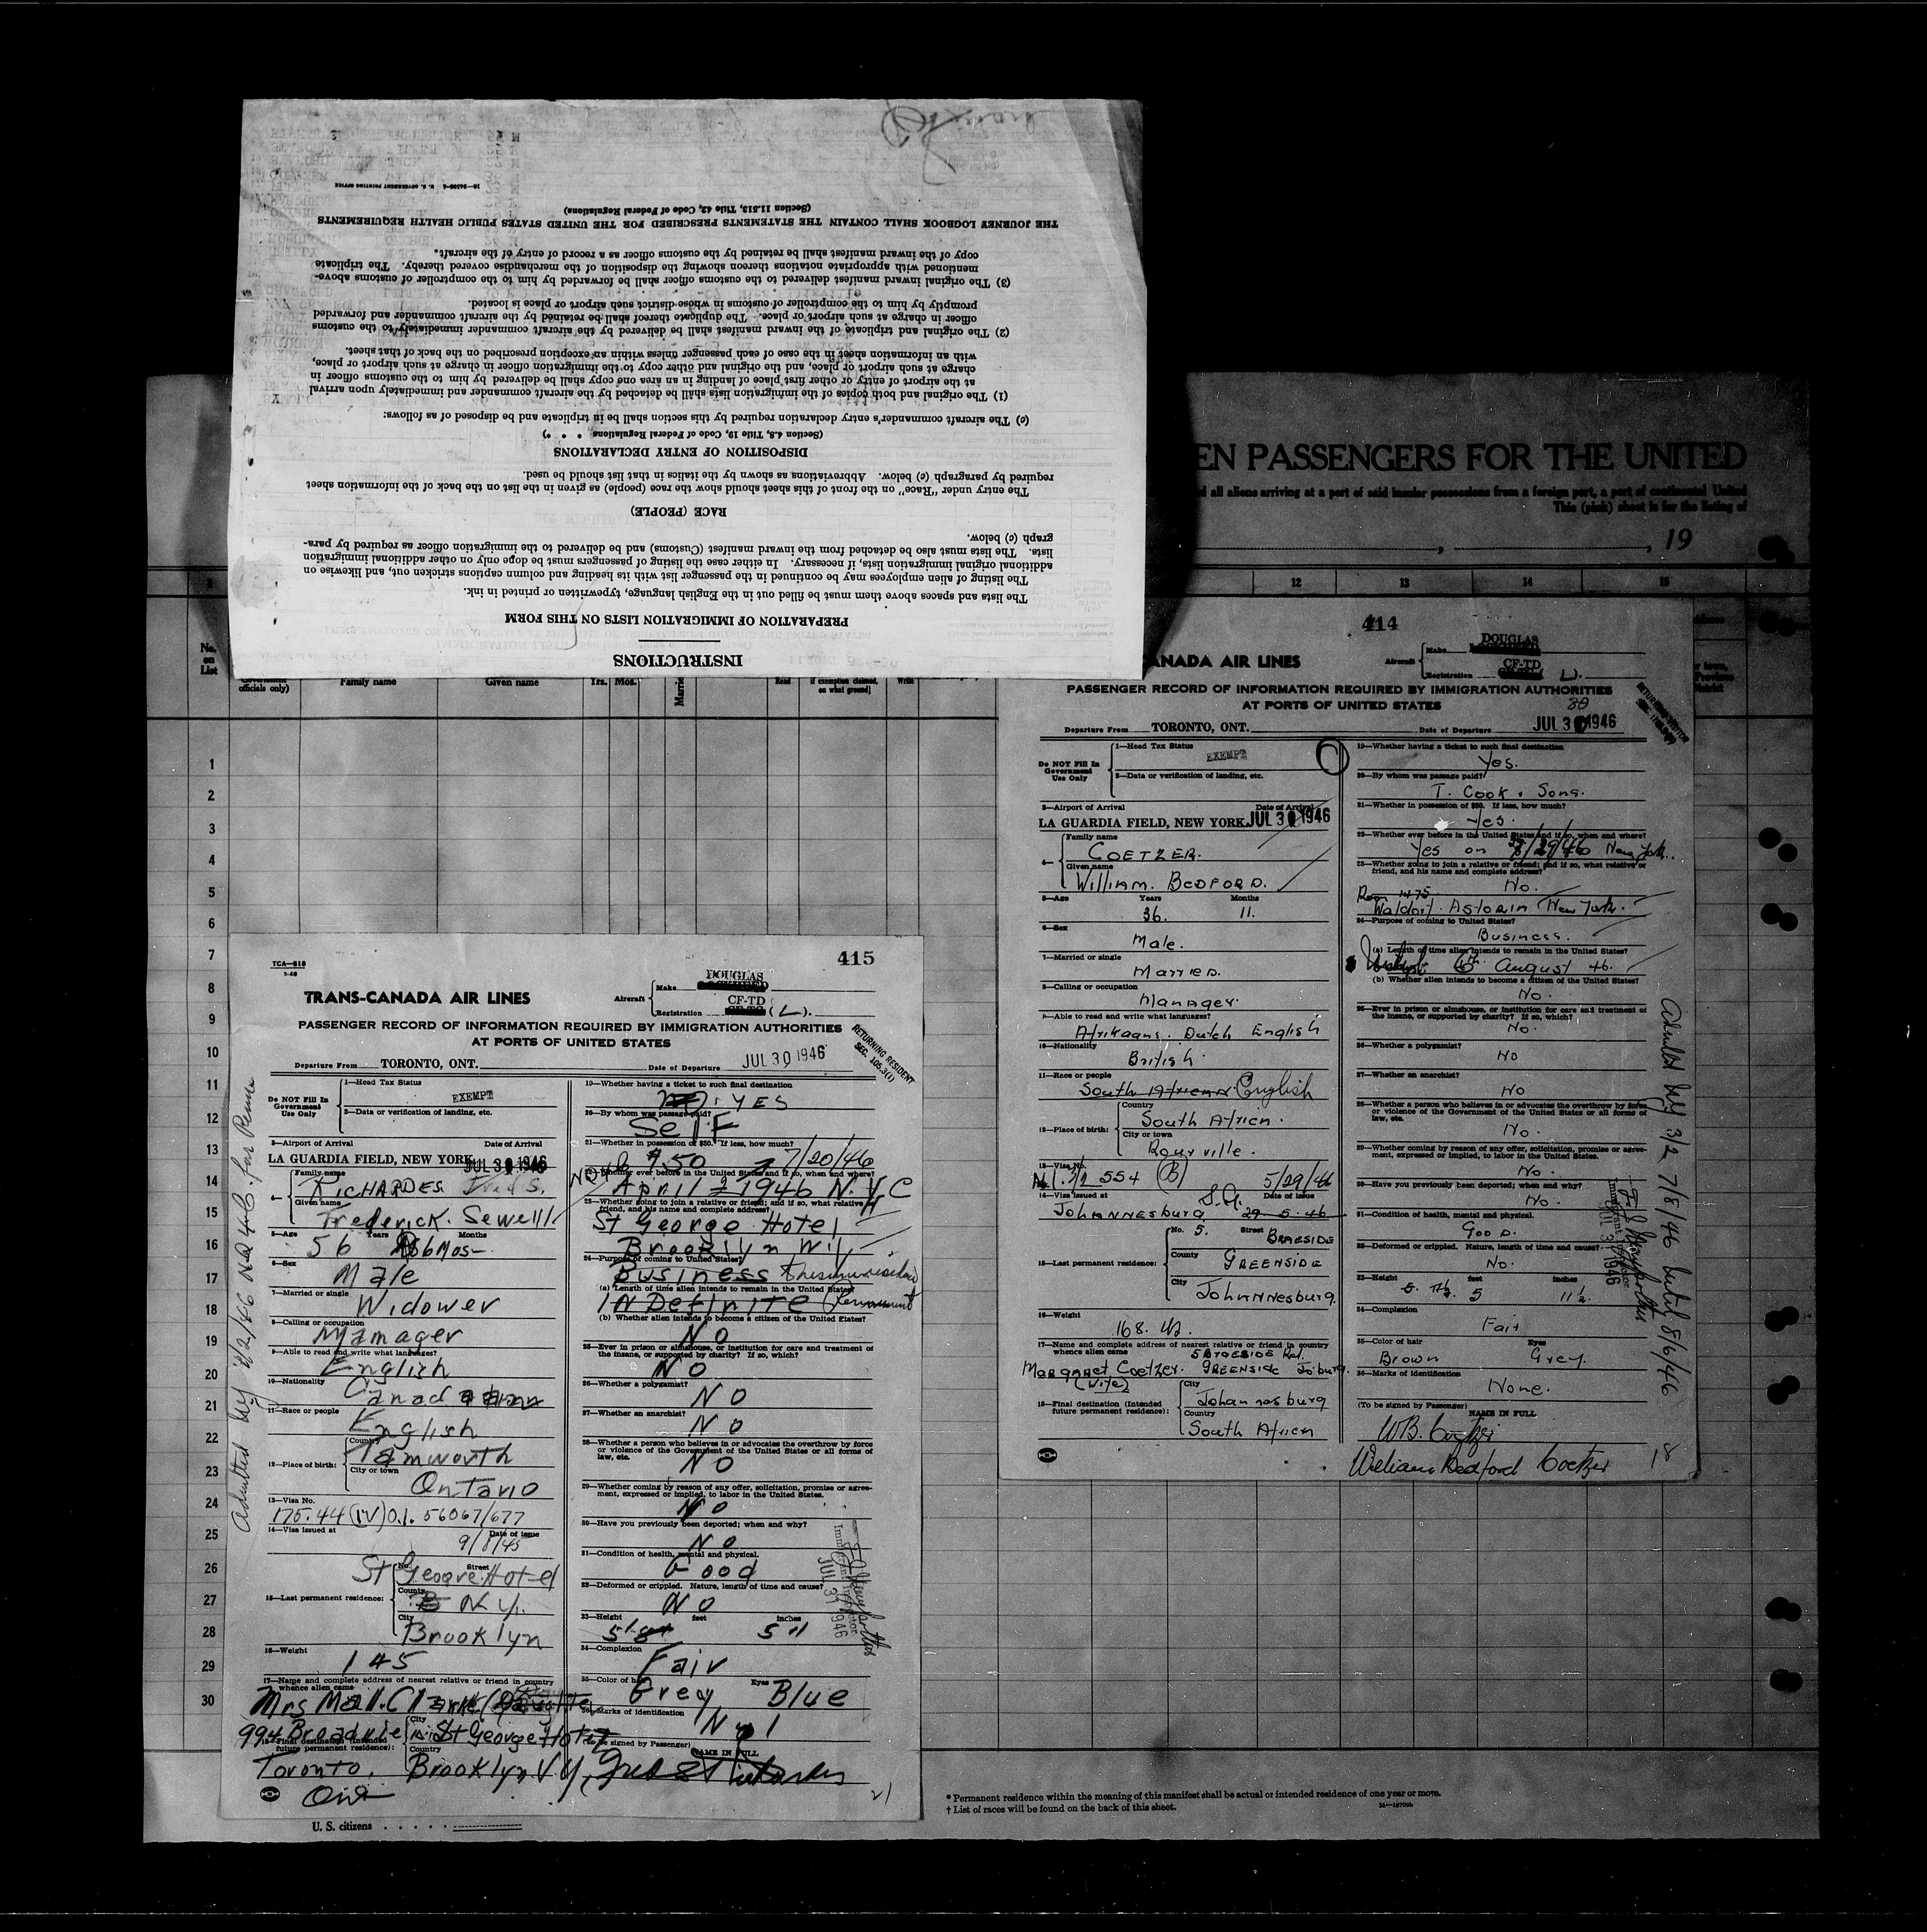 INSTRUCTIONS
PREPARATION OF IMMIGRATION LISTS ON THIS FORM
The lists and spaces above them must be filled out in the English language, typewritten or printed in ink.
The listing of alien employees may be continued in the passenger list with its heading and column captions stricken out, and likewise on
additional original immigration lists, if necessary. In either case the listing of passengers must be dope only on other additional immigration
lists. The lists must also be detached from the inward manifest (Customs) and be delivered to the immigration officer as required by para-
graph (c) below.
RACE (PEOPLE)
The entry under "Race" on the front of this sheet should show the race (people) as given in the list on the back of the information sheet
required by paragraph (c) below. Abbreviations as shown by the italics in that list should be used.
DISPOSITION OF ENTRY DECLARATIONS
(Section 4.8, Title 19, Code of Federal Regulations * * *)
(c) The aircraft commander's entry declaration required by this section shall be in triplicate and be disposed of as follows:
(1) The original and both copies of the immigration lists shall be detached by the aircraft commander and immediately upon arrival
at the airport of entry or other first place of landing in an area one copy shall be delivered by him to the customs officer in
charge at such airport or place, and the original and other copy to the immigration officer in charge at such airport or place,
with an information sheet in the case of each passenger unless within an exception prescribed on the back of that sheet.
(2) The original and triplicate of the inward manifest shall be delivered by the aircraft commander immediately to the customs
officer in charge at such airport or place. The duplicate thereof shall be retained by the aircraft commander and forwarded
promptly by him to the comptroller of customs in whose district such airport or place is located.
(3) The original inward manifest delivered to the customs officer shall be forwarded by him to the comptroller of customs above-
mentioned with appropriate notations thereon showing the disposition of the merchandise covered thereby. The triplicate
copy of the inward manifest shall be retained by the customs officer as a record of entry of the aircraft.
THE JOURNEY LOGBOOK SHALL CONTAIN THE STATEMENTS PRESCRIBED FOR THE UNITED STATES PUBLIC HEALTH REQUIREMENTS
(Section 11.513, Title 42, Code of Federal Regulations)
U. S. GOVERNMENT PRINTING OFFICE
EN PASSENGERS FOR THE UNITED
d all aliens arriving at a port of said insular possessions from a foreign port, a port of continental United
This (pink) sheet is for the listing of
, 19
12 13 14 15
No. on List
officials only) Family name Given name Yrs. Mos. Read if exemption claimed, on what ground] Write
1
2
3
4
5
6
7
8
9
10
11
12
13
14
15
16
17
18
19
20
21
22
23
24
25
26
27
28
29
30
414
ANADA AIR LINES
Aircraft Make DOUGLAS
Registration CF-TD L).
PASSENGER RECORD OF INFORMATION REQUIRED BY IMMIGRATION AUTHORITIES
AT PORTS OF UNITED STATES
Departure From TORONTO, ONT. Date of Departure JUL 30 1946
Do NOT Fill In Government Use Only
1—Head Tax Status EXEMPT
2—Data or verification of landing, etc.
3—Airport of Arrival Date of Arrival
LA GUARDIA FIELD, NEW YORK JUL 30 1946
4— Family name COETZER.
Given name WILLIAM. BEDFORD.
5—Age Years 36. Months 11.
6—Sex Male.
7—Married or single Married.
8—Calling or occupation Manager.
9—Able to read and write what languages?
Afrikaans. Dutch English
10—Nationality British.
11—Race or people South African English
12—Place of birth: Country South African.
City or town Rouxville.
13—Visa No. 554 (B) 5/29/46
14—Visa issued at Date of issue
Johannesburg S.A. 29-5-46
15—Last permanent residence: No. 5. Street BRAESIDE
County GREENSIDE
City Johannesburg.
16—Weight 168.
17—Name and complete address of nearest relative or friend in country whence alien came
5 BRAESIDE Rd.
Margaret Coetzer. GREENSIDE Jo'burg.
(wife)
18—Final destination (Intended future permanent residence): City Johannesburg
Country South African
19—Whether having a ticket to such final destination
Yes.
20—By whom was passage paid?
T. Cook & Sons.
21—Whether in possession of $50. If less, how much?
Yes.
22—Whether ever before in the United States and if so, when and where?
Yes on 29/46 New York.
23—Whether going to join a relative or friend; and if so, what relative or friend, and his name and complete address?
No.
Room 1475.
Waldorf. Astoria New York.
24—Purpose of coming to United States?
Business.
(a) Length of time alien intends to remain in the United States?
6th August 46.
(b) Whether alien intends to become a citizen of the United States?
No.
25—Ever in prison or almshouse, or institution for care and treatment of the insane, or supported by charity? If so, which?
No.
26—Whether a polygamist?
No
27—Whether an anarchist?
No
28—Whether a person who believes in or advocates the overthrow by force or violence of the Government of the United States or all forms of law, etc.
No.
29—Whether coming by reason of any offer, solicitation, promise or agreement, expressed or implied, to labor in the United States.
No.
30—Have you previously been deported; when and why?
No.
31—Condition of health, mental and physical.
Good.
32—Deformed or crippled. Nature, length of time and cause?
No.
33—Height 5 feet 11½ inches
34—Complexion Fair
35—Color of hair Brown Eyes Grey.
36—Marks of identification None.
(To be signed by Passenger) NAME IN FULL
W.B. Coetzer
William Bedford Coetzer
18
Admitted by 3/2 7/8/46 until 8/6/46
Immigrant Inspector
JUL 31 1946
TCA—818
415
TRANS-CANADA AIR LINES
Aircraft Make DOUGLAS
Registration CF-TD (L).
PASSENGER RECORD OF INFORMATION REQUIRED BY IMMIGRATION AUTHORITIES
AT PORTS OF UNITED STATES
RETURNING RESIDENT
SEC. 105.3(1)
Departure From TORONTO, ONT. Date of Departure JUL 30 1946
Do NOT Fill In Government Use Only
1—Head Tax Status EXEMPT
2—Data or verification of landing, etc.
3—Airport of Arrival Date of Arrival
LA GUARDIA FIELD, NEW YORK JUL 30 1946
4— Family name RICHARDES Fred S.
Given name Frederick. Sewell
5—Age 56 Years 6 Mos Months
6—Sex Male
7—Married or single Widower
8—Calling or occupation Manager
9—Able to read and write what languages? English
10—Nationality Canadian
11—Race or people English
12—Place of birth: Country Tamworth
City or town Ontario
13—Visa No. 175.44 (IV) O.I. 56067/677
14—Visa issued at Date of issue 9/8/45
15—Last permanent residence: No. Street St George Hotel
County N.Y.
City Brooklyn
16—Weight 145
17—Name and complete address of nearest relative or friend in country whence alien came
Mrs
994
18—Final destination (Intended future permanent residence): City St George Hotel
Country Brooklyn N.Y.
Toronto.
Ont
19—Whether having a ticket to such final destination
YES
20—By whom was passage paid?
Self
21—Whether in possession of $50. If less, how much?
$50 7/20/46
22—Whether ever before in the United States and if so, when and where?
April 1946 N.Y.C
23—Whether going to join a relative or friend; and if so, what relative or friend, and his name and complete address?
St George Hotel
Brooklyn N.Y.
24—Purpose of coming to United States?
Business
(a) Length of time alien intends to remain in the United States?
INDefinite (Permanent
(b) Whether alien intends to become a citizen of the United States?
NO
25—Ever in prison or almshouse, or institution for care and treatment of the insane, or supported by charity? If so, which?
NO
26—Whether a polygamist?
NO
27—Whether an anarchist?
NO
28—Whether a person who believes in or advocates the overthrow by force or violence of the Government of the United States or all forms of law, etc.
NO
29—Whether coming by reason of any offer, solicitation, promise or agreement, expressed or implied, to labor in the United States.
NO
30—Have you previously been deported; when and why?
NO
31—Condition of health, mental and physical.
Good
32—Deformed or crippled. Nature, length of time and cause?
NO
33—Height feet inches
34—Complexion Fair
35—Color of hair Grey Eyes Blue
36—Marks of identification Nil
(To be signed by Passenger) NAME IN FULL
21
Immigrant Inspector
JUL 31 1946
U. S. citizens
* Permanent residence within the meaning of this manifest shall be actual or intended residence of one year or more.
† List of races will be found on the back of this sheet.